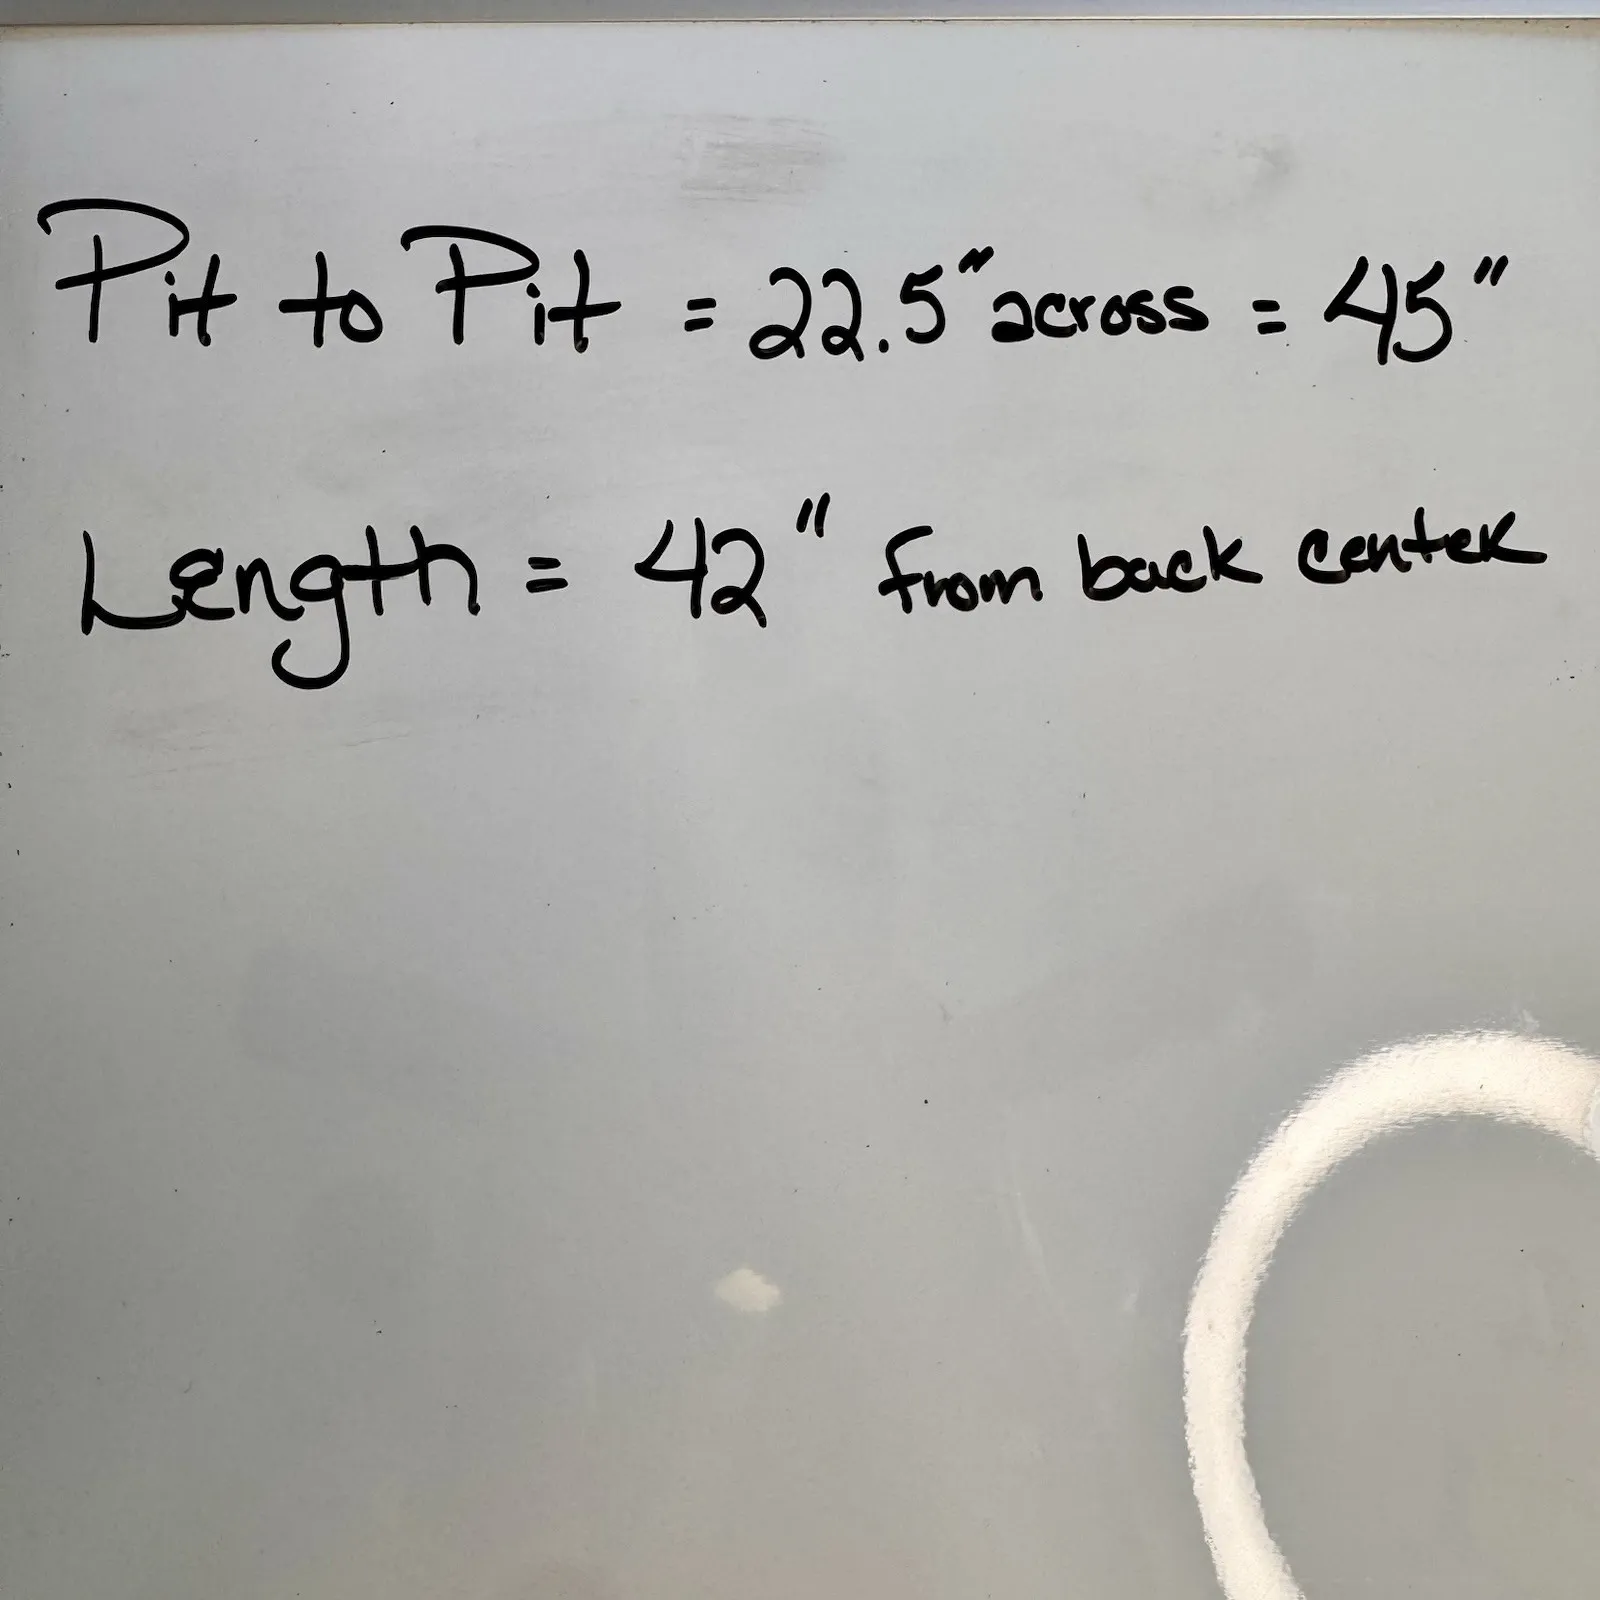 Pit to Pit = 22.5" across = 45"
Length = 42" from back center